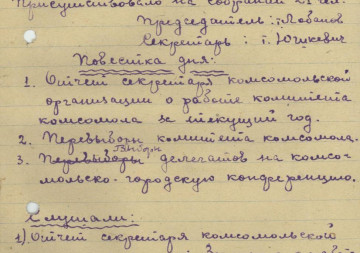 Присутствовало на собрании 21 чел.
Председатель: т. Лобанов
Секретарь: т. Юшкевич
Повестка дня:
1. Отчет секретаря комсомольской
организации о работе комитета
комсомола за текущий год.
2. Перевыборы комитета комсомола.
Выборы
3. Перевыборы делегатов на комсо-
мольско-городскую конференцию.
Слушали:
1) Отчет секретаря комсомольской